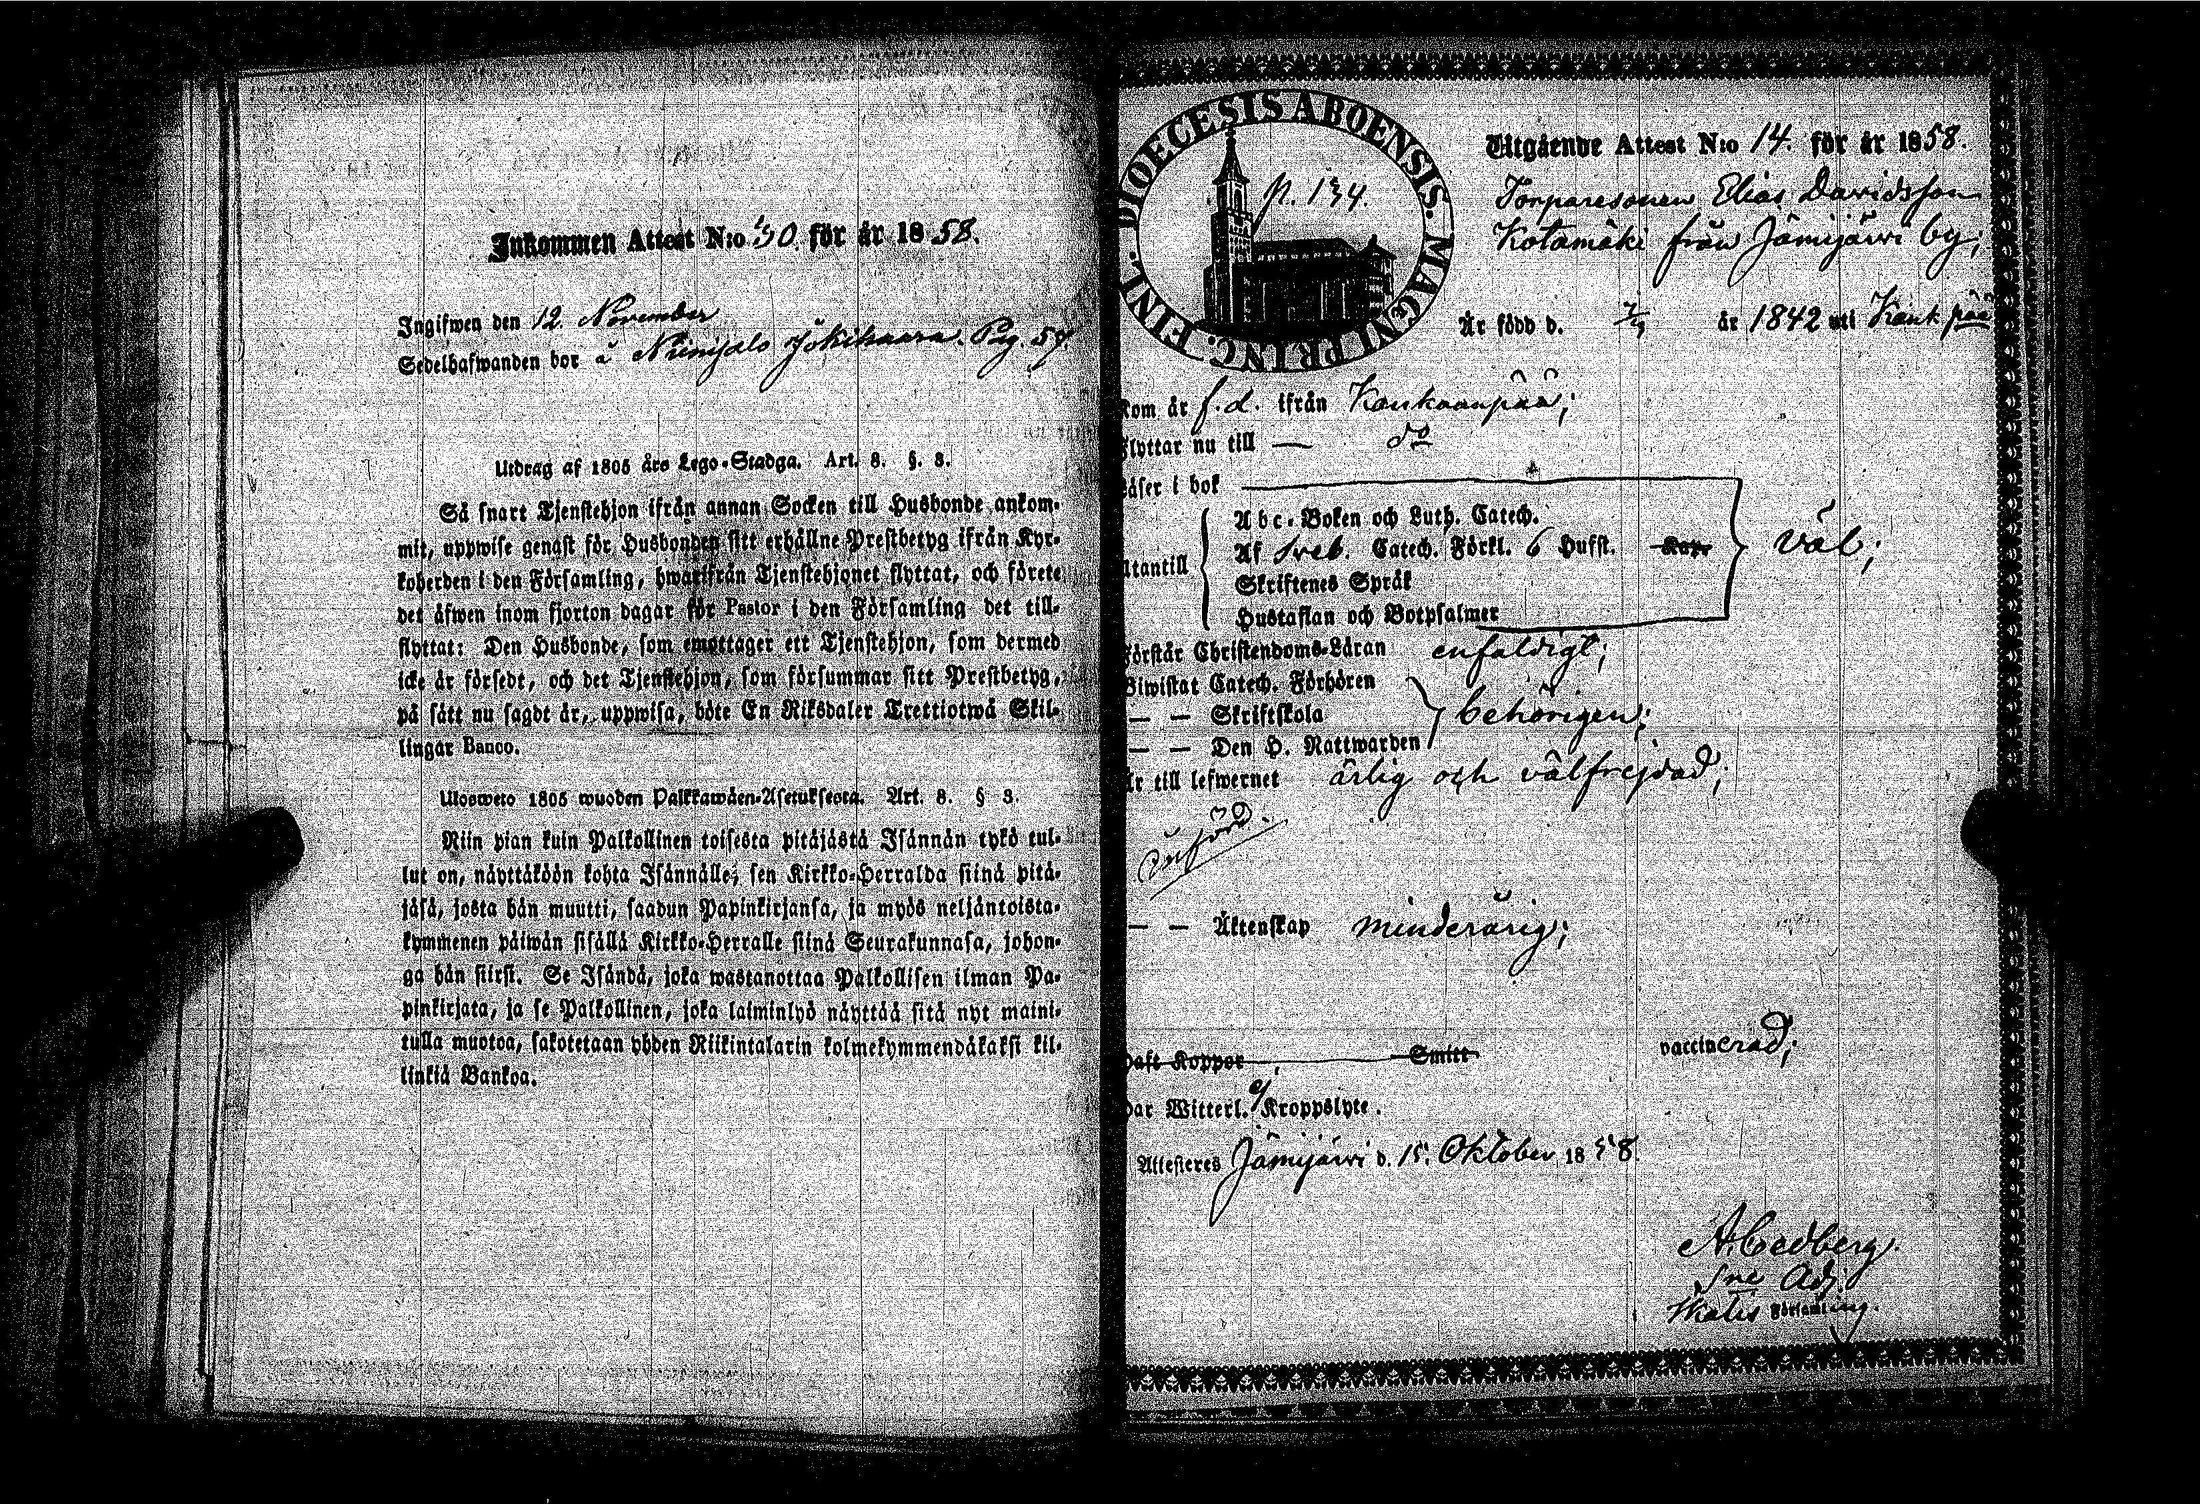 Inkommen Attest N:o 30 för år 1858.
Ingifwen den 12. November
Sedelhafwanden bor å Niemjalo Jokihaara. Pag. 57.
Utdrag af 1805 års Lego-Stadga. Art. 8. §. 3.
Så snart Tjenstehjon ifrån annan Socken till Husbonde ankom-
mit, uppwise genast för Husbonden sitt erhållne Prestbetyg ifrån Kyr-
koherden i den Församling, hwarifrån Tjenstehjonet flyttat, och förete
det äfwen inom fjorton dagar för Pastor i den Församling det till-
flyttat: Den Husbonde, som emottager ett Tjenstehjon, som dermed
icke är försedt, och det Tjenstehjon, som försummar sitt Prestbetyg,
på sätt nu sagdt är, uppwisa, böte En Riksdaler Trettiotwå Skil-
lingar Banco.
Ulosweto 1805 wuoden Palkkawäen-Asetuksesta. Art. 8. § 3.
Niin pian kuin Palkollinen toisesta pitäjästä Isännän tykö tul-
lut on, näyttäköön kohta Isännälle, sen Kirkko-Herralda siinä pitä-
jäsä, josta hän muutti, saadun Papinkirjansa, ja myös neljäntoista-
kymmenen päiwän sisällä Kirkko-Herralle siinä Seurakunnasa, johon-
ga hän siirsi. Se Isändä, joka wastanottaa Palkollisen ilman Pa-
pinkirjata, ja se Palkollinen, joka laiminlyö näyttää sitä nyt maini-
tulla muotoa, sakotetaan yhden Riikintalarin kolmekymmendäkaksi kil-
linkiä Bankoa.
DIOECESIS ABOENSIS. MAGNI PRINC. FINL.
N. 134.
Utgående Attest N:o 14. för år 1858.
Torparesonen Elias Davidsson
Kotamäki från Jämijärvi by;
År född d. år 1842 uti Kankpää
Kom år f.d. ifrån Kankaanpää;
Flyttar nu till — do
Läser i bok
Utantill
Abc-Boken och Luth. Catech.
Af Sveb. Catech. Förkl. 6 Hufst. Kap.
Skriftenes Språk
Hustaflan och Botpsalmer
väl;
Förstår Christendoms-Läran enfaldigt;
Biwistat Catech. Förhören
— — Skriftskola behörigen;
— — Den H. Nattwarden
Är till lefwernet ärlig och välfrejdad;
— — Äktenskap minderårig;
Haft Koppor Smitt vaccinerad;
Har Witterl. ej Kroppslyte.
Attesteres Jämijärvi d. 15. Oktober 1858.
A. Cedberg.
Sne Adj.
Ikalis Församling.